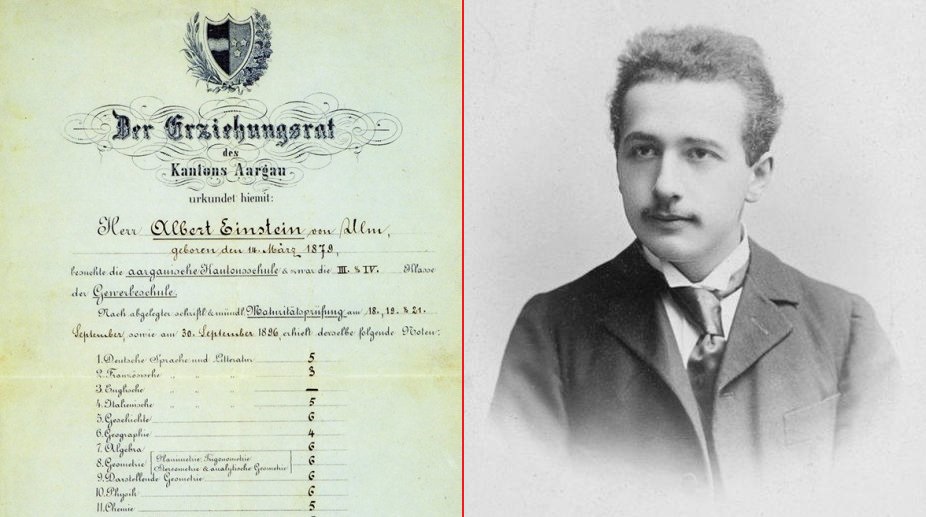 Der Erziehungsrat
des
Kantons Aargau
urkundet hiemit:
Herr Albert Einstein von Ulm,
geboren den 14. März 1879,
besuchte die aargauische Kantonsschule & zwar die III. & IV. Klasse
der Gewerbeschule.
Nach abgelegter schriftl. & mündl. Maturitätsprüfung am 18., 19. & 21.
September, sowie am 30. September 1896, erhielt derselbe folgende Noten:
1. Deutsche Sprache und Litteratur 5
2. Französische " " " 3
3. Englische " " " —
4. Italienische " " " 5
5. Geschichte 6
6. Geographie 4
7. Algebra 6
8. Geometrie Planimetrie, Trigonometrie 6
Stereometrie & analytische Geometrie
9. Darstellende Geometrie 6
10. Physik 6
11. Chemie 5